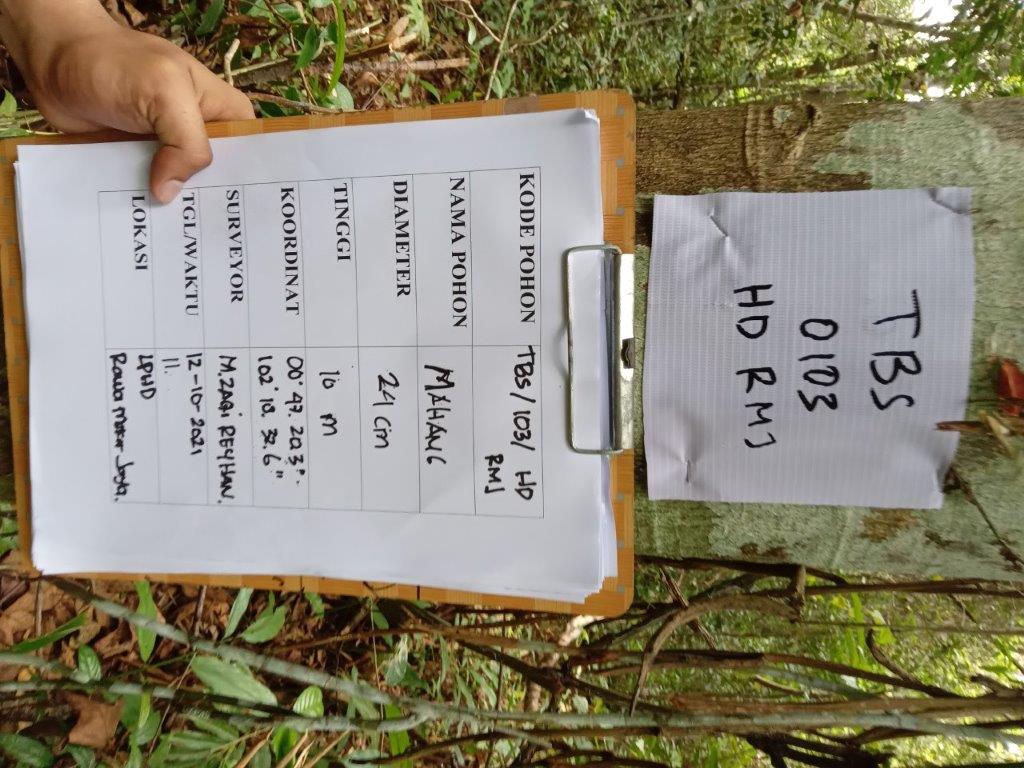 TBS
0103
HD RMJ
KODE POHON TBS/103/ HD
RMJ
NAMA POHON MAHANG
DIAMETER 24 cm
TINGGI 10 m
KOORDINAT 00° 47. 20.3".
102° 10. 32.6"
SURVEYOR M.ZAQI REYHAN.
TGL/WAKTU 12-10-2021
11.
LOKASI LPHD
Rawa Mekar Jaya.